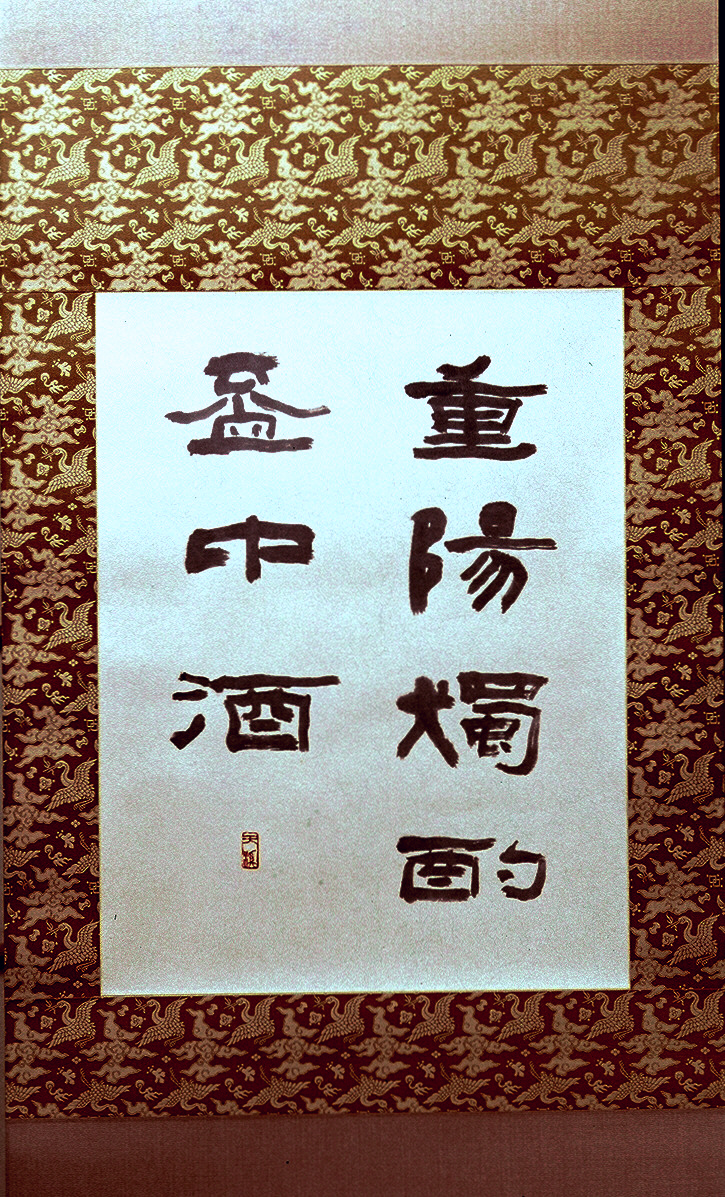 重陽獨酌
盃中酒